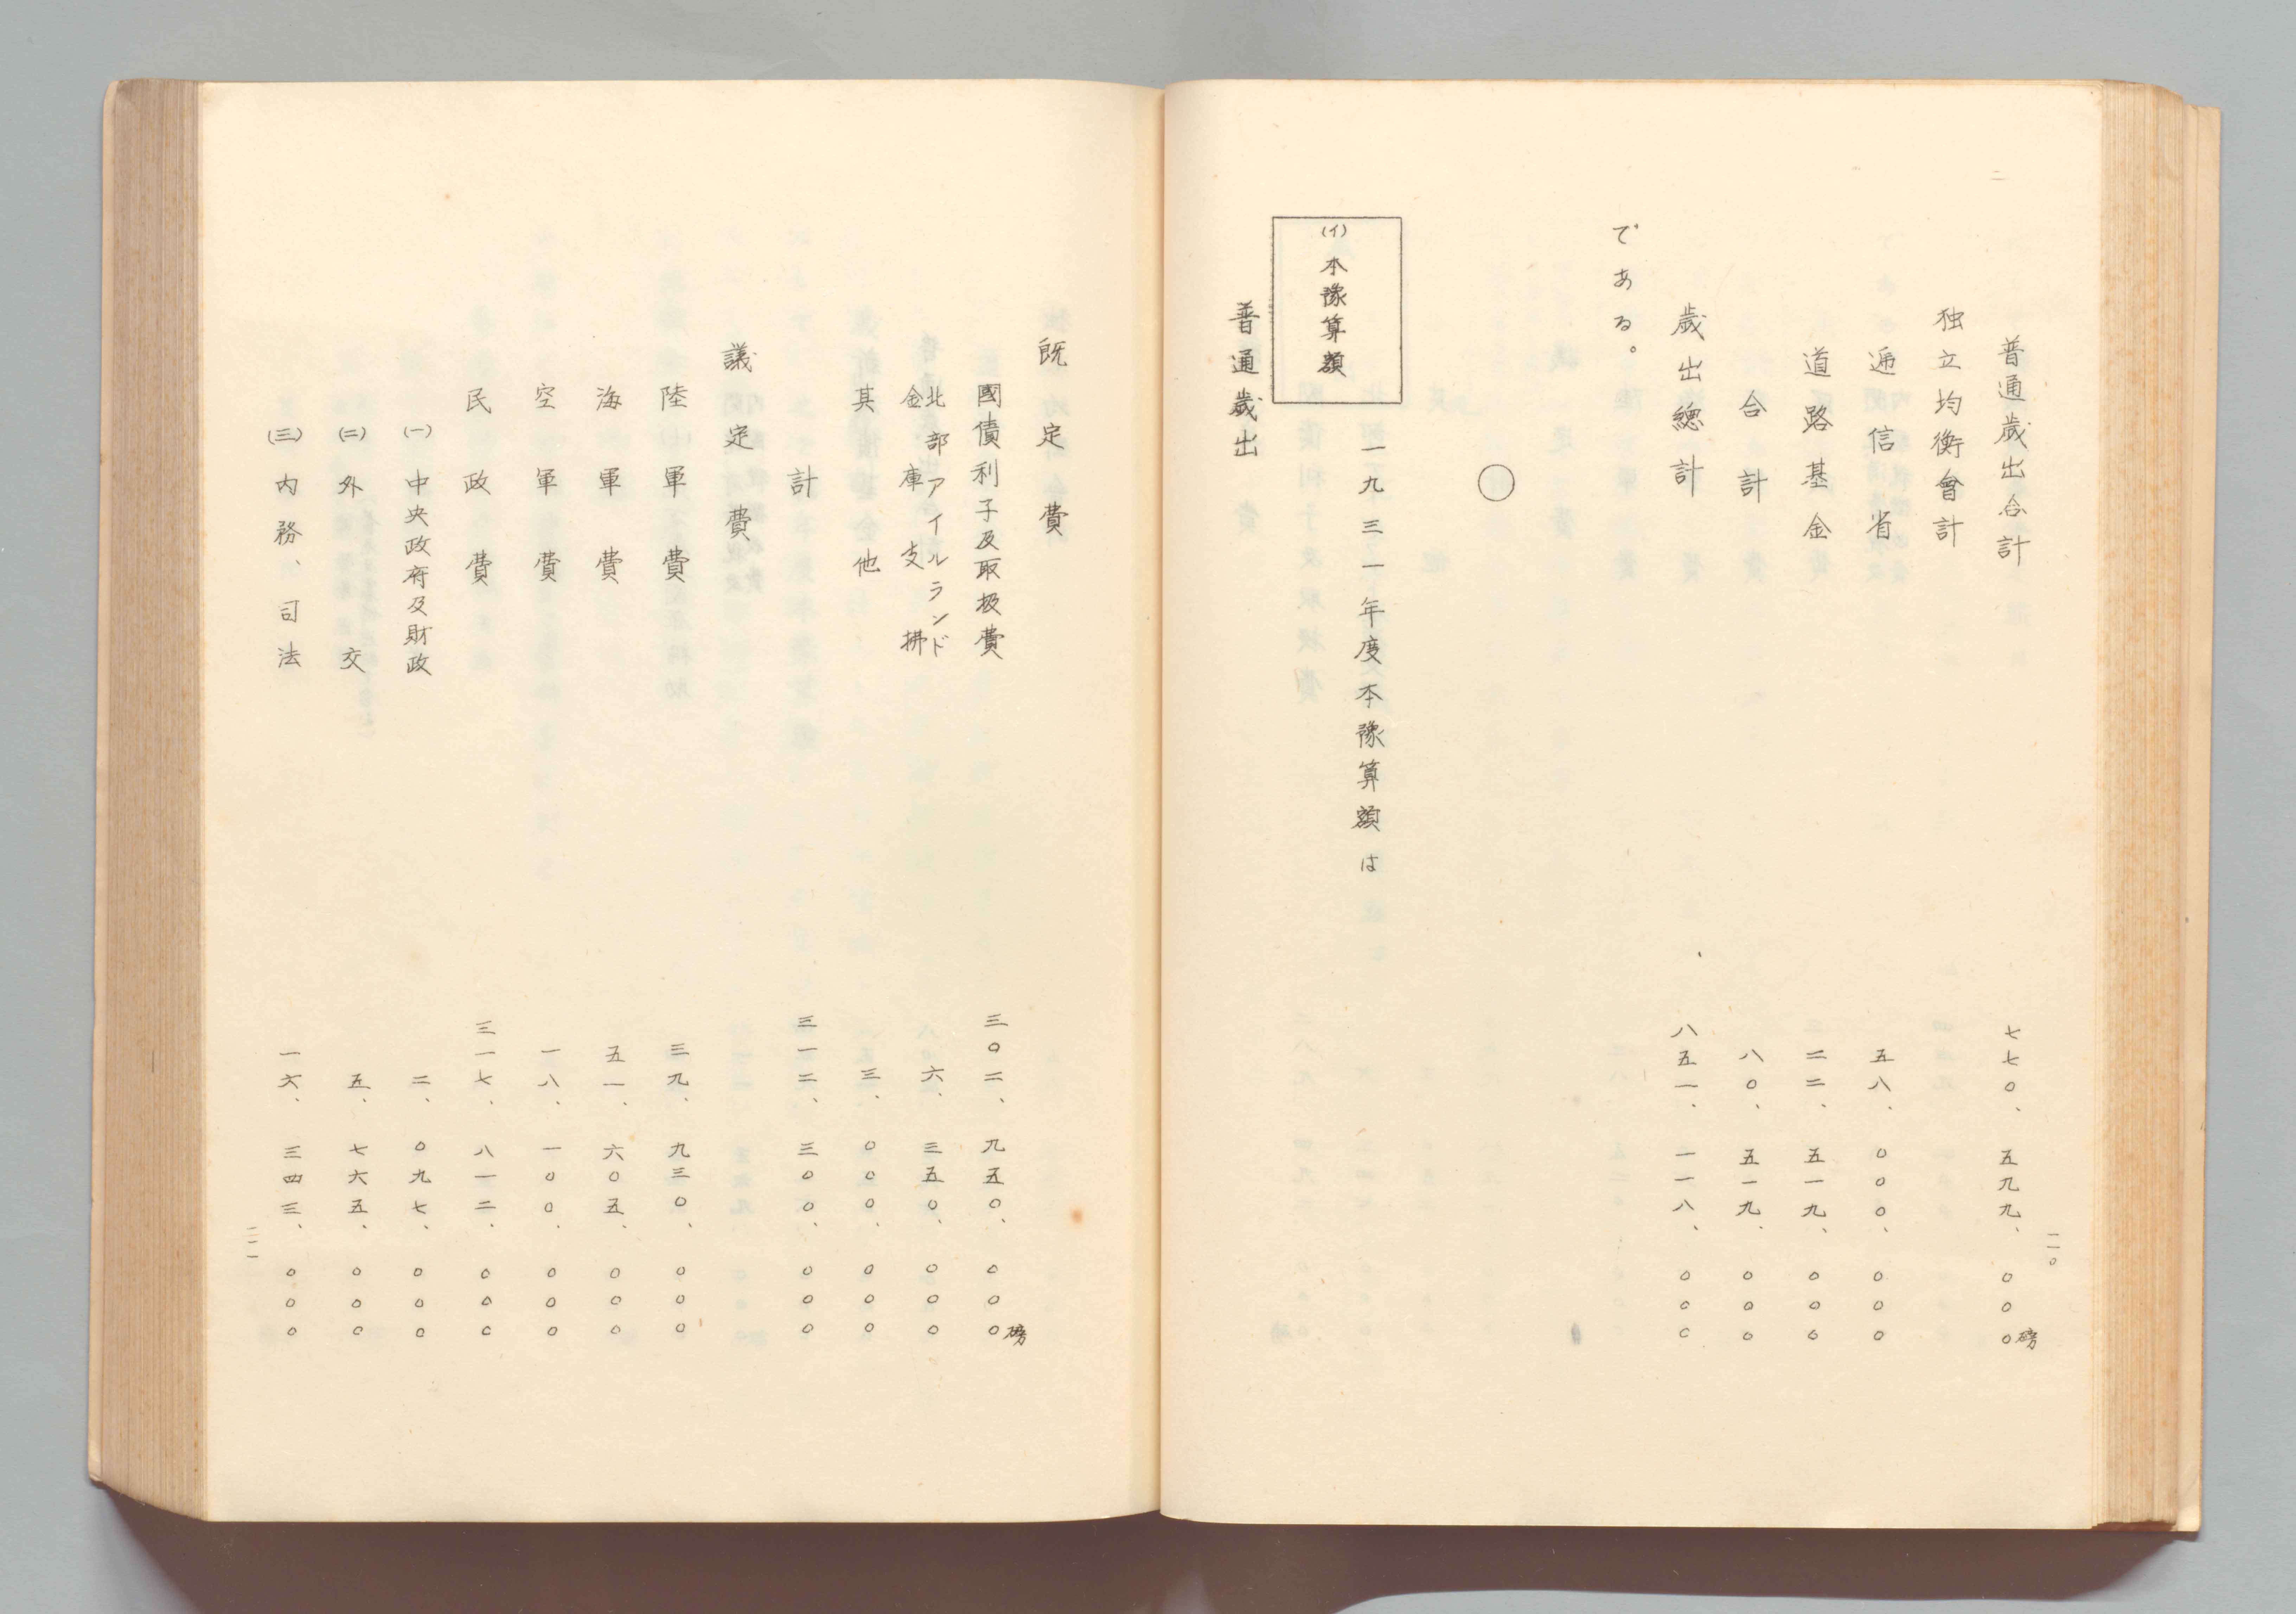 普通歳出合計 七七〇、五九九、〇〇〇磅
独立均衡會計
逓信省 五八、〇〇〇、〇〇〇
道路基金 二二、五一九、〇〇〇
合計 八〇、五一九、〇〇〇
歳出總計 八五一、一一八、〇〇〇
である。
〇
一九三一年度本豫算額は
(イ)本豫算額
普通歳出
二〇
既定費
國債利子及取扱費 三〇二、九五〇、〇〇〇磅
北部アイルランド
金庫支拂 六、三五〇、〇〇〇
其他 三、〇〇〇、〇〇〇
計 三一二、三〇〇、〇〇〇
議定費
陸軍費 三九、九三〇、〇〇〇
海軍費 五一、六〇五、〇〇〇
空軍費 一八、一〇〇、〇〇〇
民政費 三一七、八一二、〇〇〇
(一)中央政府及財政 二、〇九七、〇〇〇
(二)外交 五、七六五、〇〇〇
(三)内務、司法 一六、三四三、〇〇〇
二一